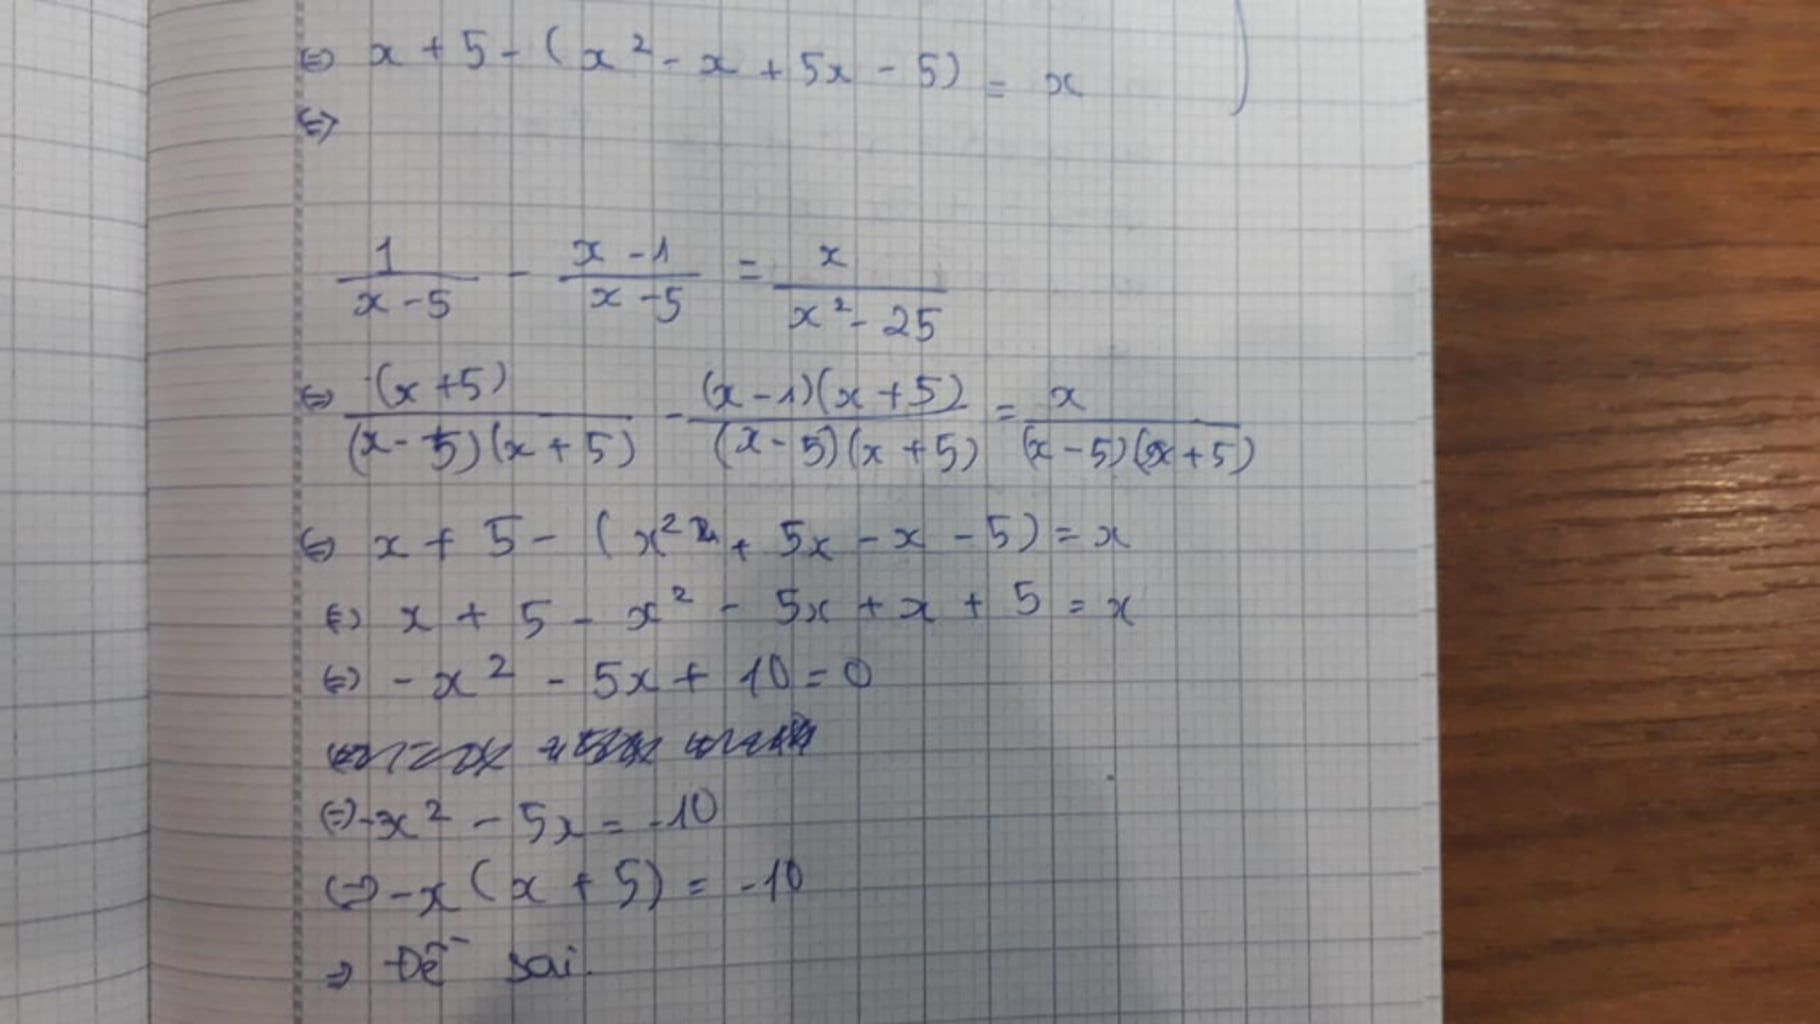 ⇔ x + 5 - (x² - x + 5x - 5) = x
⇔
1/(x - 5) - (x - 1)/(x - 5) = x/(x² - 25)
⇔ (x + 5)/((x - 5)(x + 5)) - ((x - 1)(x + 5))/((x - 5)(x + 5)) = x/((x - 5)(x + 5))
⇔ x + 5 - (x² + 5x - x - 5) = x
⇔ x + 5 - x² - 5x + x + 5 = x
⇔ - x² - 5x + 10 = 0
⇔ -x² - 5x = -10
⇔ -x (x + 5) = -10
⇒ Đề sai.